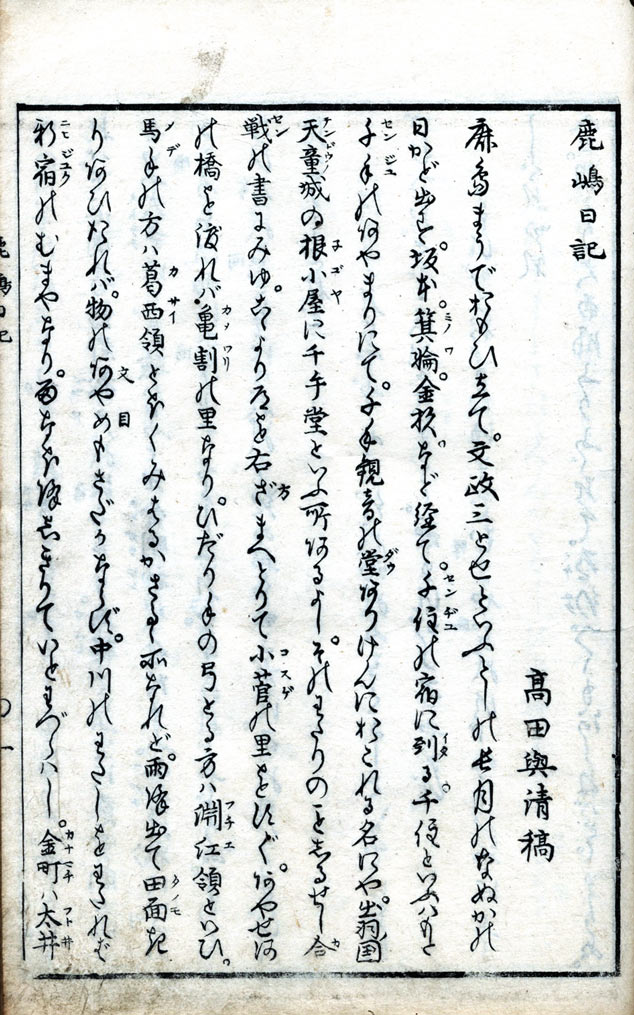 鹿嶋日記
高田與清稿
鹿島まうでおもひたちて。文政三とせといふとしの長月のなぬかの
日かど出す。坂本。箕輪。金杉。など経て。千住の宿に到る。千住といふハもと
千手のあやまりにて。千手観音の堂ありけんにおこれる名にや。出羽国
天童城の根小屋に千手堂といふ所あるよし。そのわたりのことしるせし合
戦の書にみゆ。こゝより道を右ざまへとりて小菅の里をすぐ。あやせ
の橋を渡れバ亀割の里なり。ひだり手の弓とる方ハ淵江領といひ。
馬手の方ハ葛西領とぞ
りあひたれバ。物のあやめもさだかならず。中川のわたしをわたれば
新宿のむまやなり。雨なほ降しきりていとわづらハし。金町ハ太井